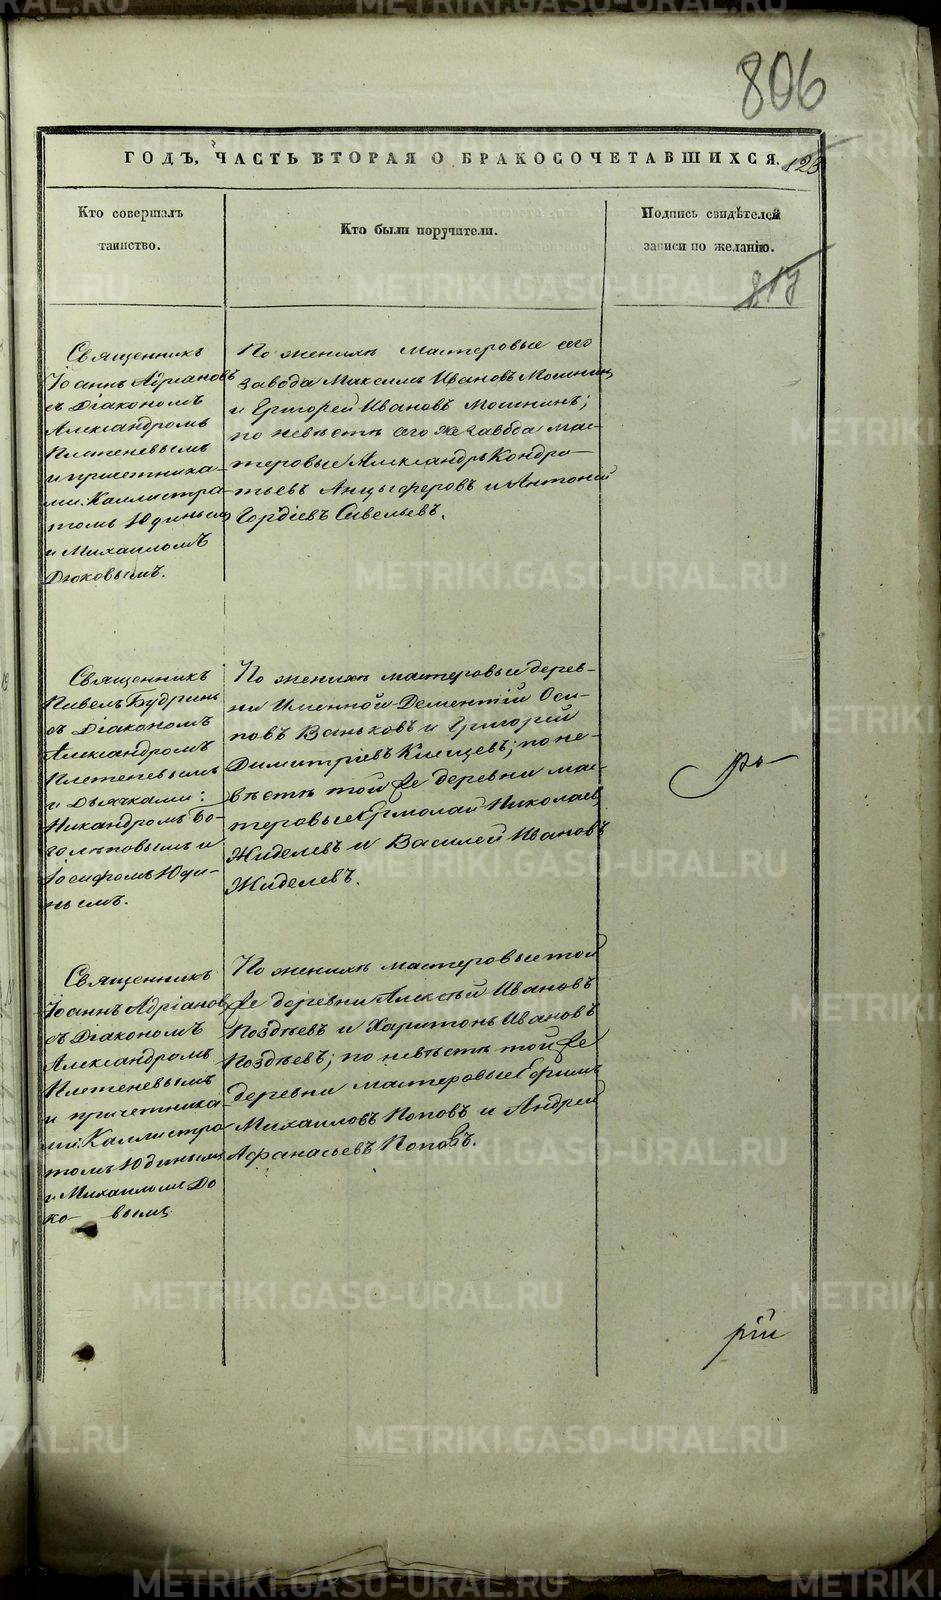 806
ГОДЪ, ЧАСТЬ ВТОРАЯ О БРАКОСОЧЕТАВШИХСЯ.
Кто совершалъ
таинство.
Кто были поручители.
Подпись свидѣтелей
записи по желанію.
817
Священникъ
Іоаннъ Адріановъ
съ Діакономъ
Александромъ
Плетеневымъ
и причетника-
ми: Каллистра-
томъ Юдинымъ
и Михаиломъ
Дюковымъ.
По женихѣ мастеровые сего
завода Максимъ Ивановъ Мошнинъ
и Григорей Ивановъ Мошнинъ;
по невѣстѣ сего же завода мас-
теровые Александръ Кондра-
тьевъ Анцыферовъ и Антоній
Гордіевъ Савельевъ.
Священникъ
Павелъ Будринъ
съ Діакономъ
Александромъ
Плетеневымъ
и Дьячками:
Никандромъ Бо-
голѣповымъ и
Іосифомъ Юди-
нымъ.
По женихѣ мастеровые дерев-
ни Именной Дементій Оси-
повъ Ваньковъ и Григорій
Димитріевъ Клещевъ; по не-
вѣстѣ той же деревни мас-
теровые Ермолай Николаевъ
Жиделевъ и Василей Ивановъ
Жиделевъ.
Священникъ
Іоаннъ Адріановъ
съ Діакономъ
Александромъ
Плетеневымъ
и причетника
ми: Каллистра-
томъ Юдинымъ
и Михаиломъ Дю
ко- вымъ
По женихѣ мастеровые той
же деревни Алексѣй Ивановъ
Поздѣевъ и Харитонъ Ивановъ
Поздѣевъ; по невѣстѣ той же
деревни мастеровые Ефимъ
Михаиловъ Поповъ и Андрей
Афанасьевъ Поповъ.
рій
METRIKI.GASO-URAL.RU